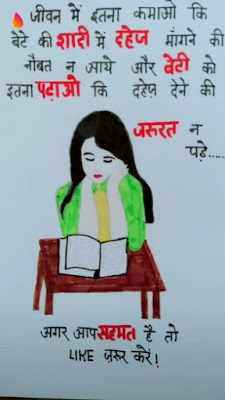 जीवन में इतना कमाओ कि
बेटे की शादी में दहेज माँगने की
नौबत न आये और बेटी को
इतना पढ़ाओ कि दहेज़ देने की
जरुरत न
पढ़े.....
अगर आप सहमत है तो
LIKE ज़रूर करें!